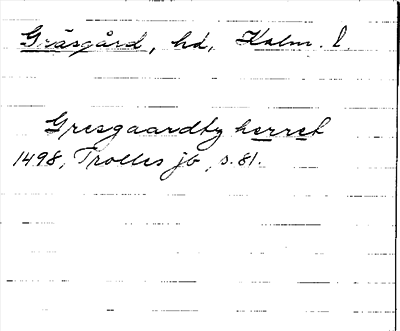 Gräsgård, hd, Kalm. l.
Gresgaardby herret
1498, Trolles jb, s. 81.